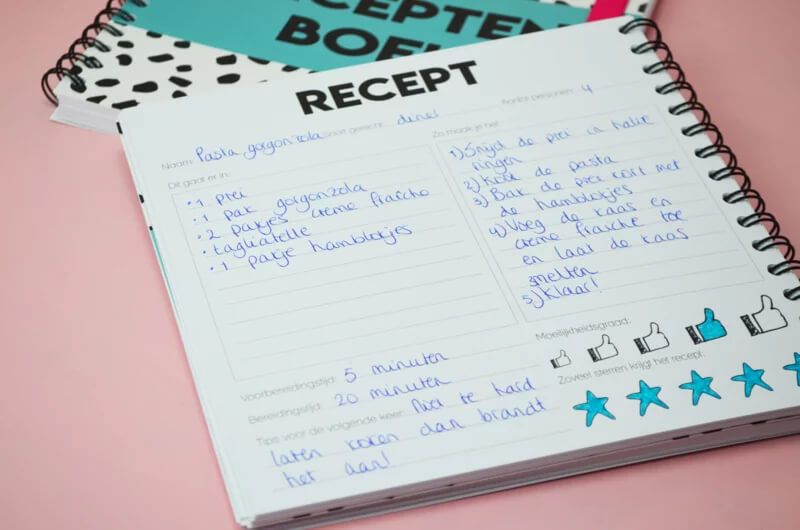 CEPTEN
BOE
RECEPT
Naam: Pasta gorgonzola Soort gerecht: diner Aantal personen: 4
Dit gaat er in:
• 1 prei
• 1 pak gorgonzola
• 2 pakjes crème fraîche
• tagliatelle
• 1 pakje hamblokjes
Zo maak je het:
1) Snijd de prei in halve
ringen
2) Kook de pasta
3) Bak de prei kort met
de hamblokjes
4) Voeg de kaas en
crème fraîche toe
en laat de kaas
smelten
5) Klaar!
Voorbereidingstijd: 5 minuten
Bereidingstijd: 20 minuten
Tips voor de volgende keer: Niet te hard
laten koken dan brandt
het aan!
Moeilijkheidsgraad:
Zoveel sterren krijgt het recept: